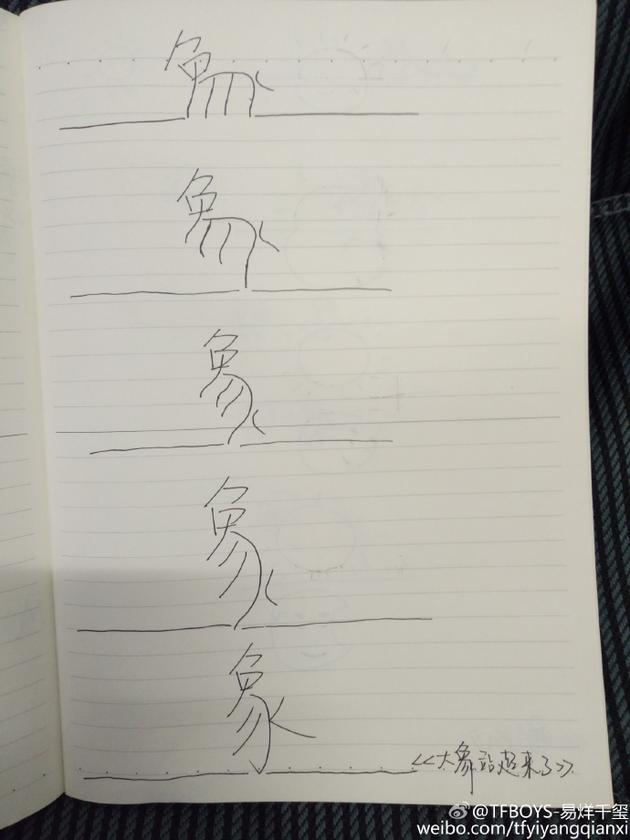 象
象
象
象
象
《大象站起来了》
@TFBOYS-易烊千玺
weibo.com/tfyiyangqianxi